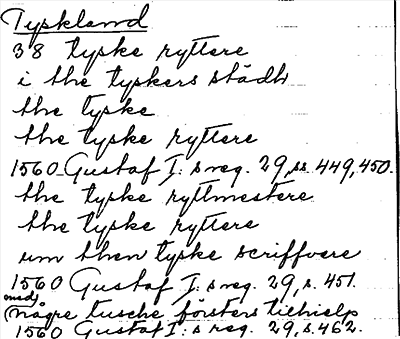 Tyskland
38 tyske ryttere
i the tyskers städh
the tyske
the tyske ryttere
1560 Gustaf I:s reg. 29, ss. 449, 450.
the tyske ryttmestere
the tyske ryttere
um then tyske scriffvere
1560 Gustaf I:s reg. 29, s. 451.
med
någre tusche försters tilhielp
1560 Gustaf I:s reg. 29, s. 462.